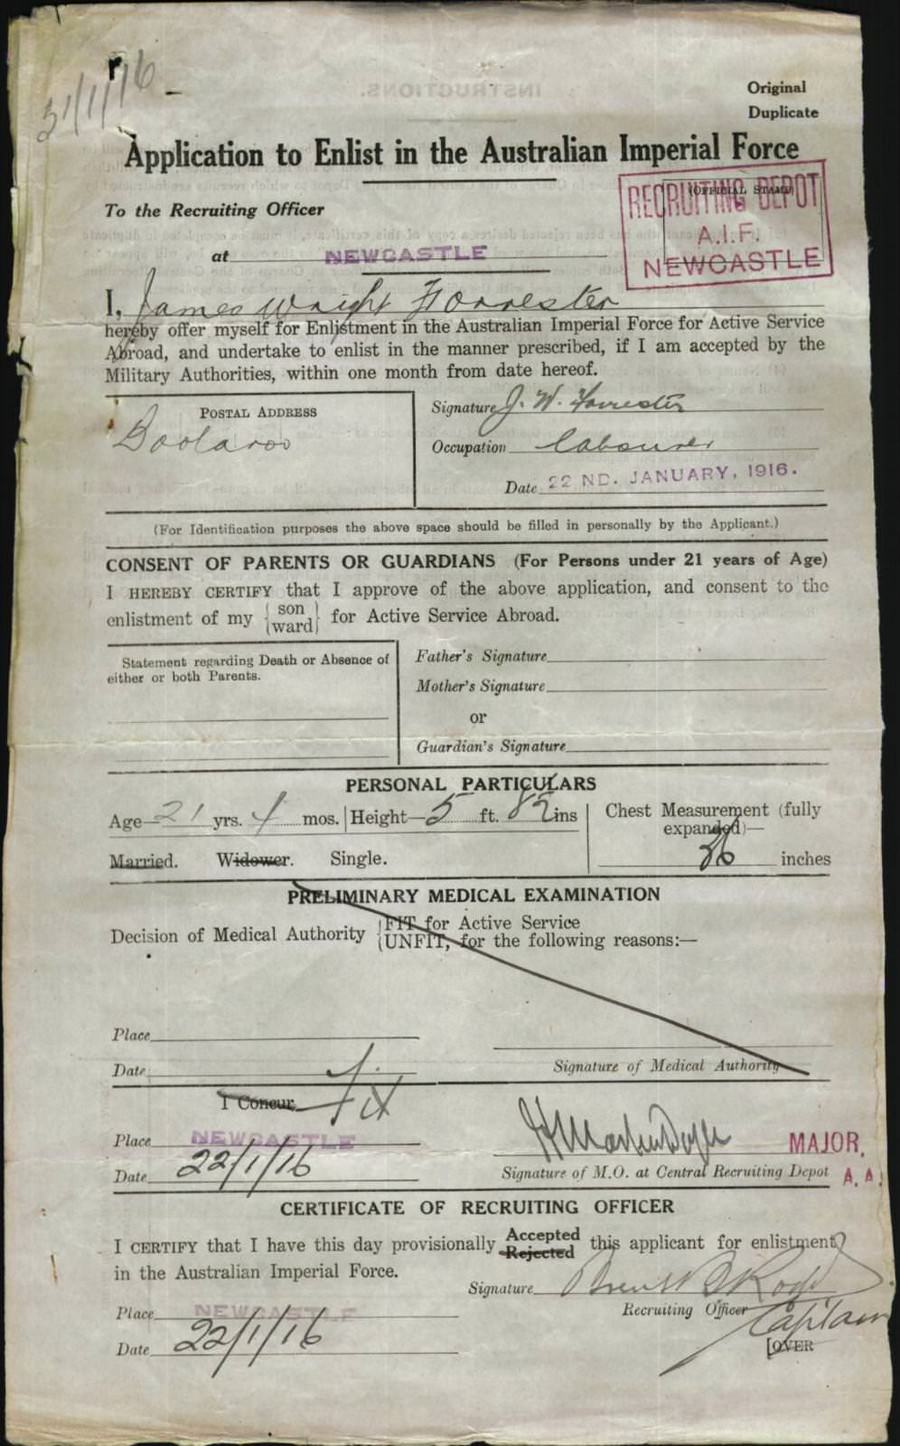 31/1/16
Original
Duplicate
Application to Enlist in the Australian Imperial Force
(OFFICIAL STAMP)
RECRUITING DEPOT
A.I.F.
NEWCASTLE
To the Recruiting Officer
at NEWCASTLE
I, James Wright Forrester
hereby offer myself for Enlistment in the Australian Imperial Force for Active Service
Abroad, and undertake to enlist in the manner prescribed, if I am accepted by the
Military Authorities, within one month from date hereof.
POSTAL ADDRESS
Boolaroo
Signature J. W. Forrester
Occupation labourer
Date 22 ND. JANUARY, 1916.
(For Identification purposes the above space should be filled in personally by the Applicant.)
CONSENT OF PARENTS OR GUARDIANS (For Persons under 21 years of Age)
I HEREBY CERTIFY that I approve of the above application, and consent to the
enlistment of my {son ward} for Active Service Abroad.
Statement regarding Death or Absence of
either or both Parents.
Father's Signature
Mother's Signature
or
Guardian's Signature
PERSONAL PARTICULARS
Age—21 yrs. 4 mos. Height—5 ft. 8½ ins
Chest Measurement (fully
expanded)—
36 inches
Married. Widower. Single.
PRELIMINARY MEDICAL EXAMINATION
Decision of Medical Authority {FIT for Active Service
{UNFIT, for the following reasons:—
Place
Date
Signature of Medical Authority
I Concur fit
Place NEWCASTLE
MAJOR,
Date 22/1/16
Signature of M.O. at Central Recruiting Depot
A. A.
CERTIFICATE OF RECRUITING OFFICER
I CERTIFY that I have this day provisionally Accepted Rejected this applicant for enlistment
in the Australian Imperial Force.
Signature
Place NEWCASTLE
Recruiting Officer
Captain
Date 22/1/16
[OVER